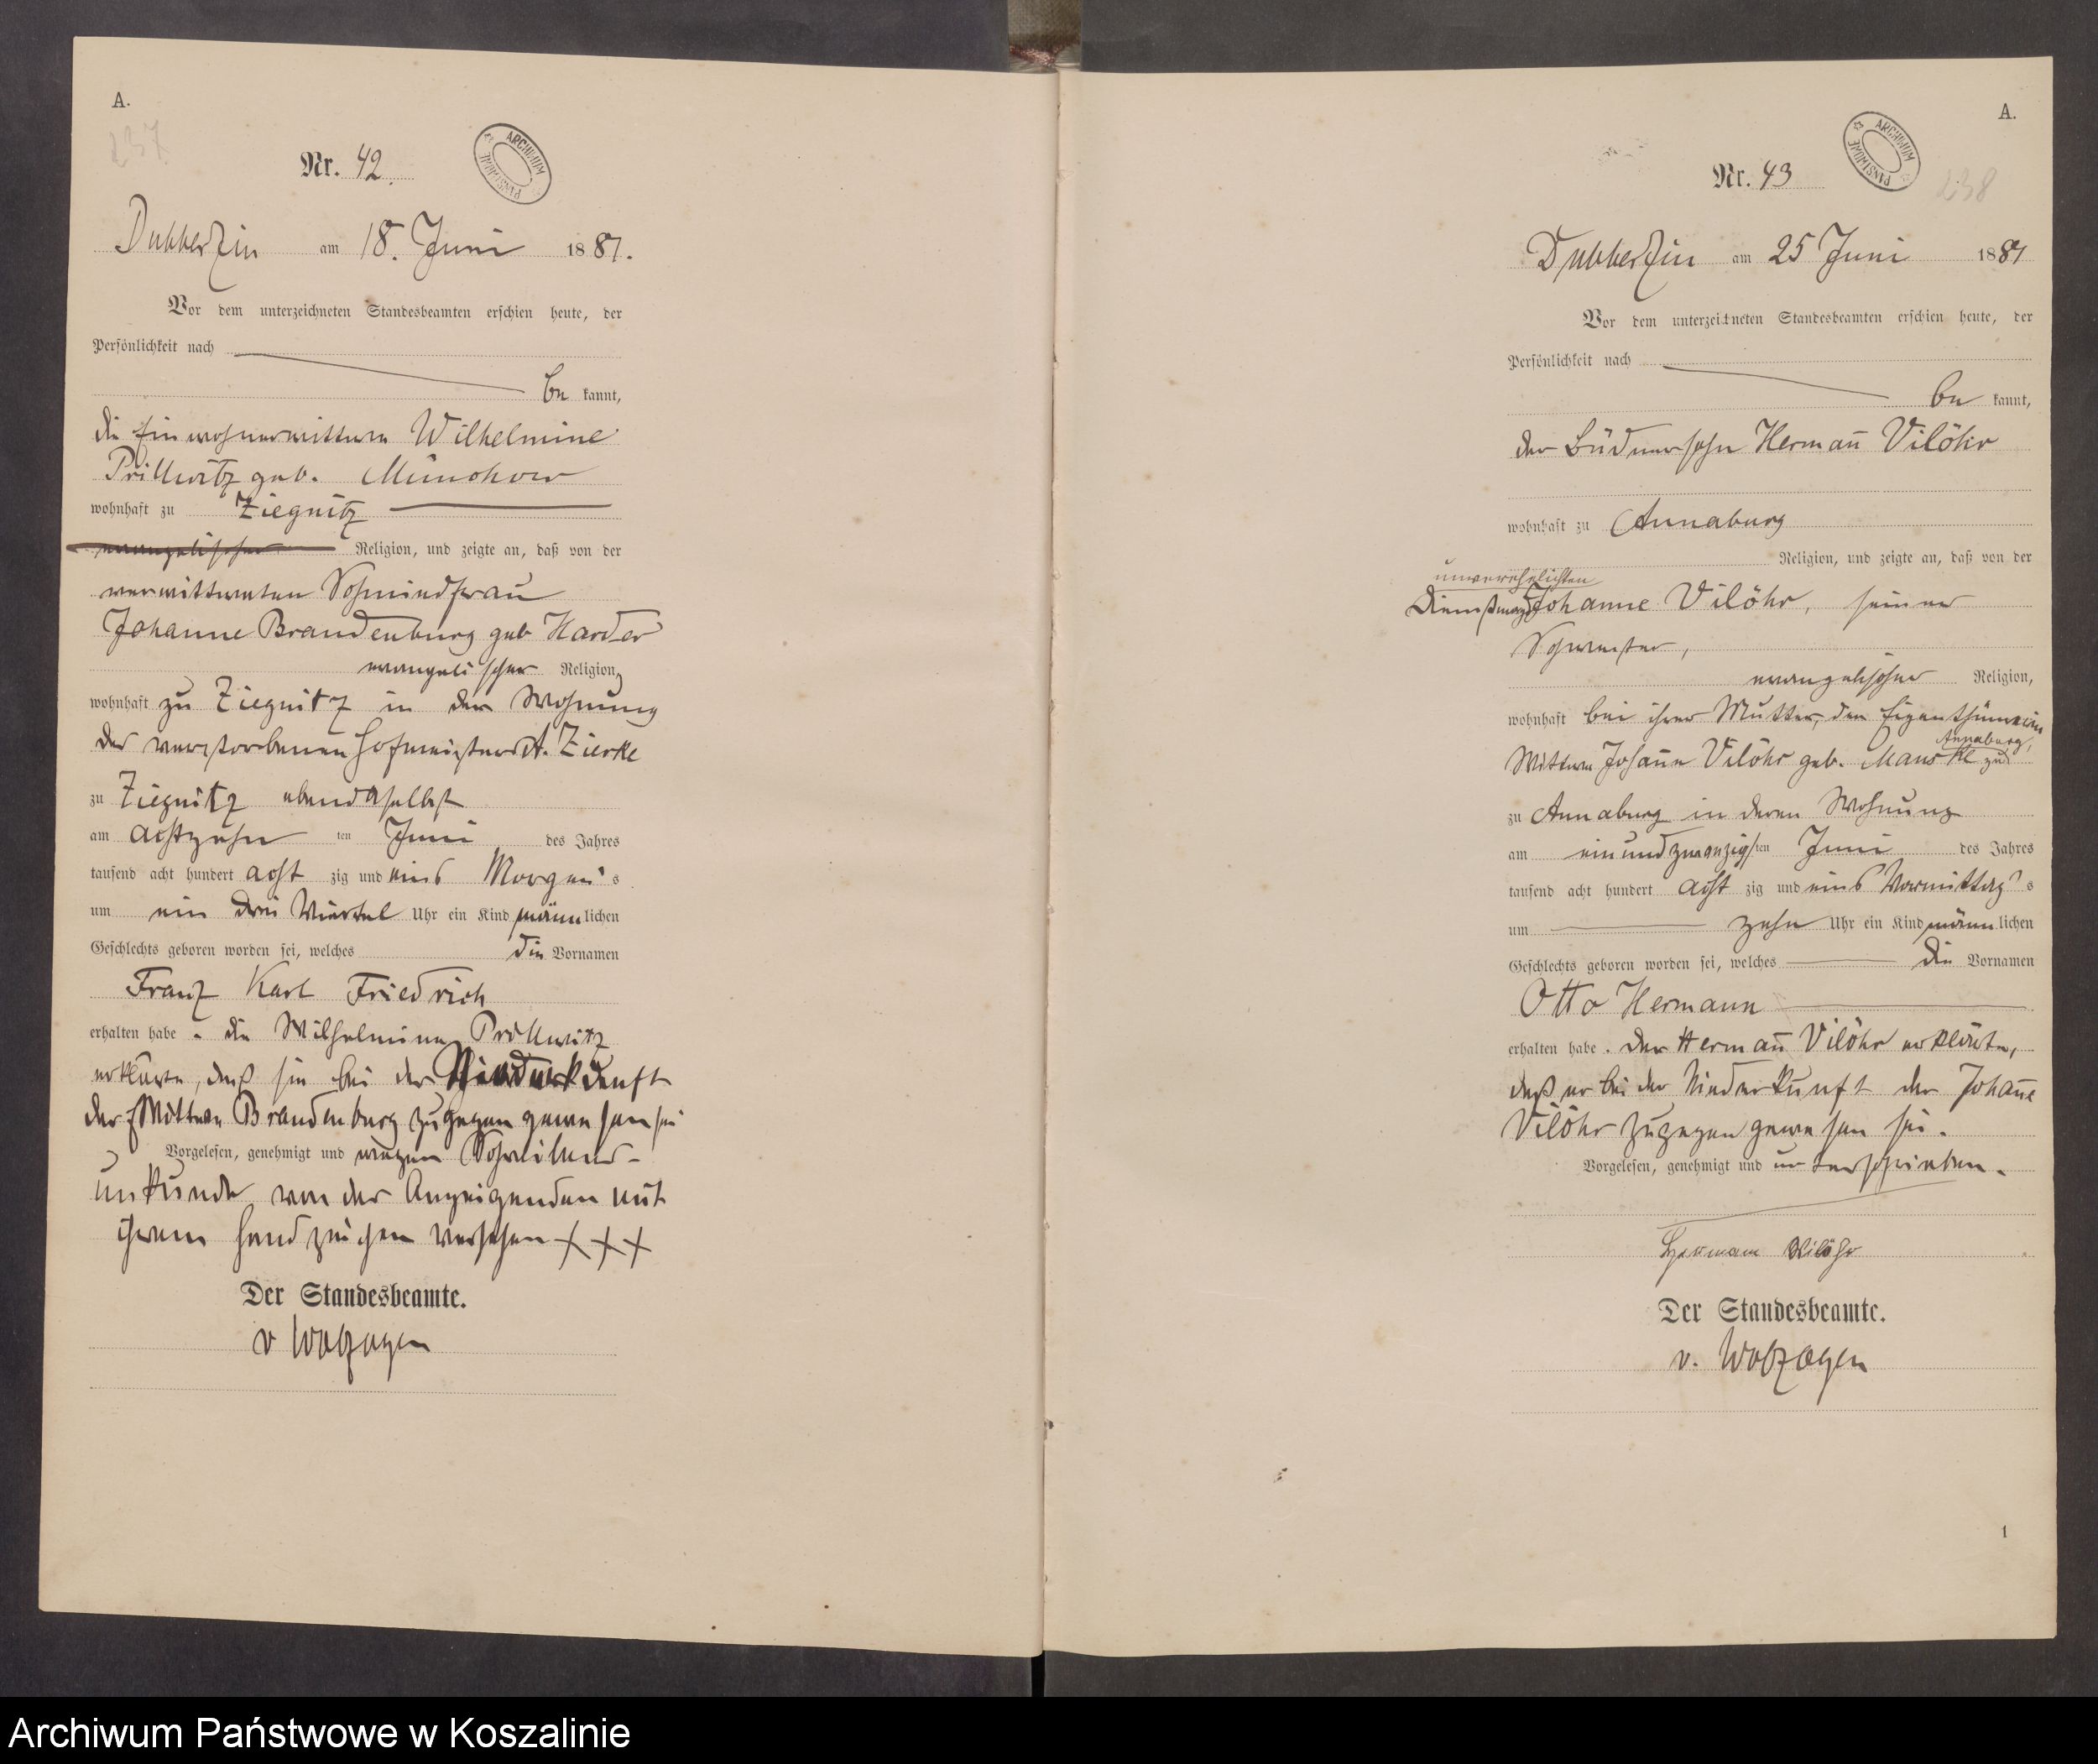 A.
237
Nr. 42.
ARCHIWUM PAŃSTWOWE
Dubberzin am 18. Juni 1881.
Vor dem unterzeichneten Standesbeamten erschien heute, der
Persönlichkeit nach
be kannt,
die Einwohnerwittwe Wilhelmine
Prillwitz geb. Münchow
wohnhaft zu Ziegnitz
evangelischer Religion, und zeigte an, daß von der
verwittweten Schmiedfrau
Johanne Brandenburg geb Harder
evangelischer Religion,
wohnhaft zu Ziegnitz in der Wohnung
des verstorbenen Hofmeisters A. Zierke
zu Ziegnitz ebendaselbst
am achtzehn ten Juni des Jahres
tausend acht hundert acht zig und eins Morgens
um ein drei Viertel Uhr ein Kind männlichen
Geschlechts geboren worden sei, welches die Vornamen
Franz Karl Friedrich
erhalten habe. die Wilhelmine Prillwitz
erklärte, daß sie bei der Niederkunft
der Wittwe Brandenburg zugegen gewesen sei
Vorgelesen, genehmigt und wegen Schreibens-
unkunde von der Anzeigenden mit
ihrem Handzeichen versehen + + +
Der Standesbeamte.
v Wolzogen
A.
Nr. 43
ARCHIWUM PAŃSTWOWE
238
Dubberzin am 25 Juni 1881
Vor dem unterzeichneten Standesbeamten erschien heute, der
Persönlichkeit nach
be kannt,
der Büdnersohn Hermañ Vilöhr
wohnhaft zu Annaburg
Religion, und zeigte an, daß von der
unverehelichten
Dienstmagd Johanne Vilöhr, seiner
Schwester,
evangelischer Religion,
wohnhaft bei ihrer Mutter, der Eigenthümerin
Annaburg,
Wittwe Johañe Vilöhr geb. Manske zu
zu Annaburg in deren Wohnung
am einundzwanzigsten Juni des Jahres
tausend acht hundert acht zig und eins Vormittags
um zehn Uhr ein Kind männlichen
Geschlechts geboren worden sei, welches die Vornamen
Otto Hermann
erhalten habe. Der Hermañ Vilöhr erklärte,
daß er bei der Niederkunft der Johañe
Vilöhr zugegen gewesen sei.
Vorgelesen, genehmigt und unterschrieben.
Hermann Vilöhr
Der Standesbeamte.
v. Wolzogen
1
Archiwum Państwowe w Koszalinie